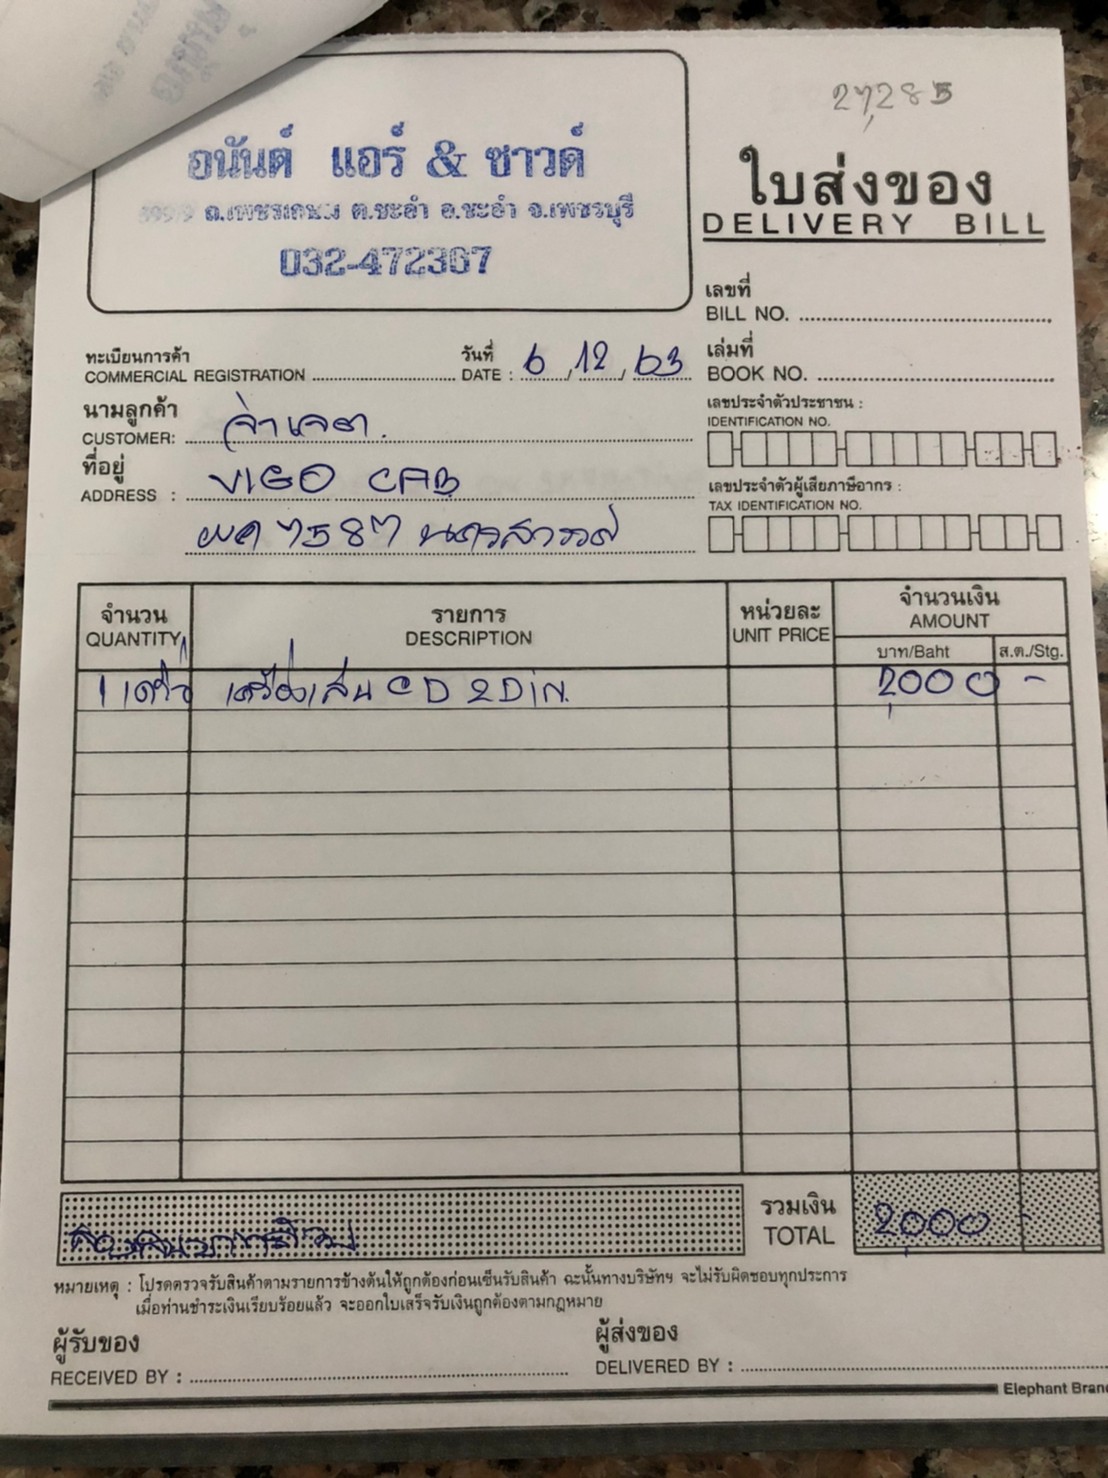 27,285
อนันต์ แอร์ & ซาวด์
ถ.เพชรเกษม ต.ชะอำ อ.ชะอำ จ.เพชรบุรี
032-472367
ใบส่งของ
DELIVERY BILL
เลขที่
BILL NO.
ทะเบียนการค้า
COMMERCIAL REGISTRATION
วันที่
DATE : 6 / 12 / 63
เล่มที่
BOOK NO.
นามลูกค้า
CUSTOMER: จ่าเจต.
เลขประจำตัวประชาชน :
IDENTIFICATION NO.
ที่อยู่
ADDRESS : VIGO CAB
7587 นครสวรรค์
เลขประจำตัวผู้เสียภาษีอากร :
TAX IDENTIFICATION NO.
จำนวน
QUANTITY
รายการ
DESCRIPTION
หน่วยละ
UNIT PRICE
จำนวนเงิน
AMOUNT
บาท/Baht
ส.ต./Stg.
1 เครื่อง เครื่องเล่น CD 2Din. 2,000 -
รวมเงิน
TOTAL 2,000 -
หมายเหตุ : โปรดตรวจรับสินค้าตามรายการข้างต้นให้ถูกต้องก่อนเซ็นรับสินค้า ฉะนั้นทางบริษัทฯ จะไม่รับผิดชอบทุกประการ
เมื่อท่านชำระเงินเรียบร้อยแล้ว จะออกใบเสร็จรับเงินถูกต้องตามกฎหมาย
ผู้รับของ
RECEIVED BY :
ผู้ส่งของ
DELIVERED BY :
Elephant Brand